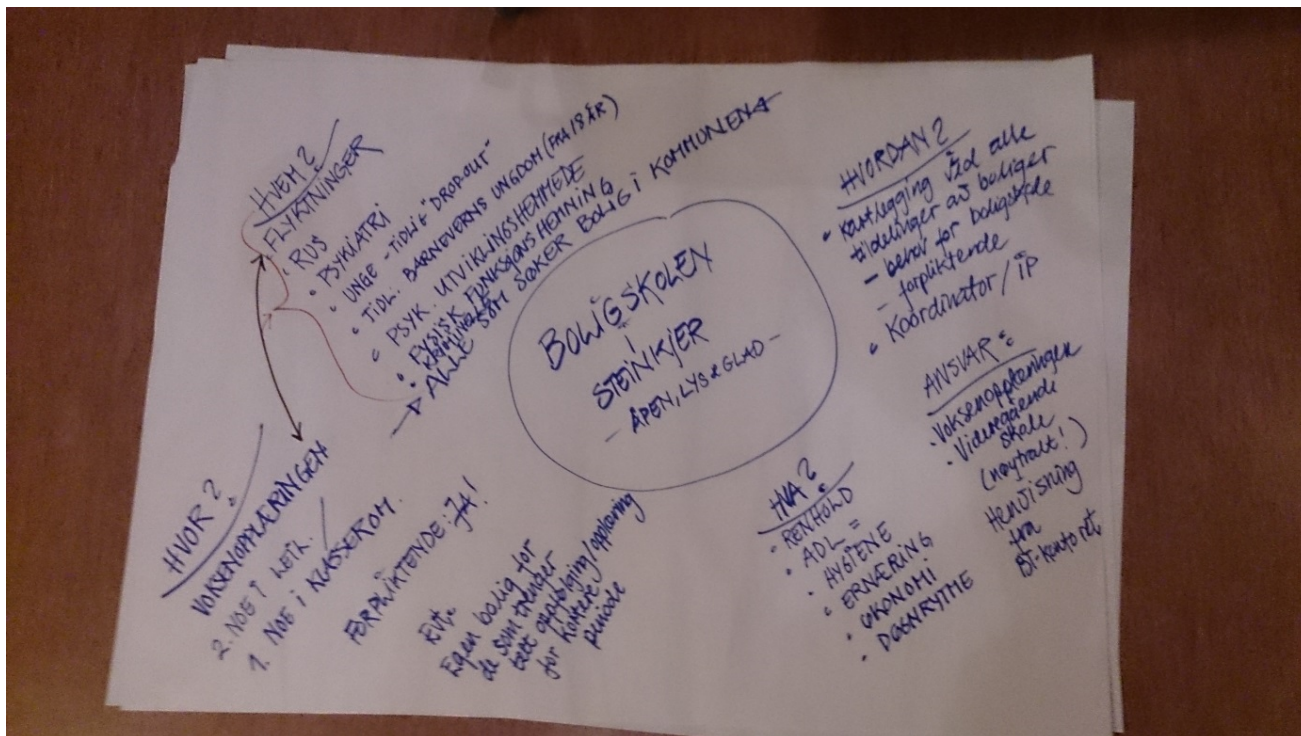 BOLIGSKOLEN
I
STEINKJER
- ÅPEN, LYS & GLAD -
HVEM?
FLYKTNINGER
• RUS
• PSYKIATRI
• UNGE - TIDLIG "DROPOUT"
• TIDL. BARNEVERNS UNGDOM (FRA 18 ÅR)
• PSYK. UTVIKLINGSHEMMEDE
FYSISK FUNKSJONSHEMNING
• KRIMINELLE
→ ALLE SOM SØKER BOLIG I KOMMUNEN
HVORDAN?
• Kartlegging ved alle
tildelinger av boliger
- behov for boligskole
- forpliktende
• Koordinator / IP
ANSVAR:
• Voksenopplæringen
• Videregående
skole
(nøytralt!)
Henvisning
fra
BT-kontoret
HVA?
• RENHOLD
• ADL =
• HYGIENE
• ERNÆRING
• ØKONOMI
• DØGNRYTME
HVOR?
VOKSENOPPLÆRINGEN
2. NOE I LEIL.
1. NOE I KLASSEROM.
FORPLIKTENDE: JA!
Evt.
Egen bolig for
de som trenger
tett oppfølging/opplæring
for kortere
periode